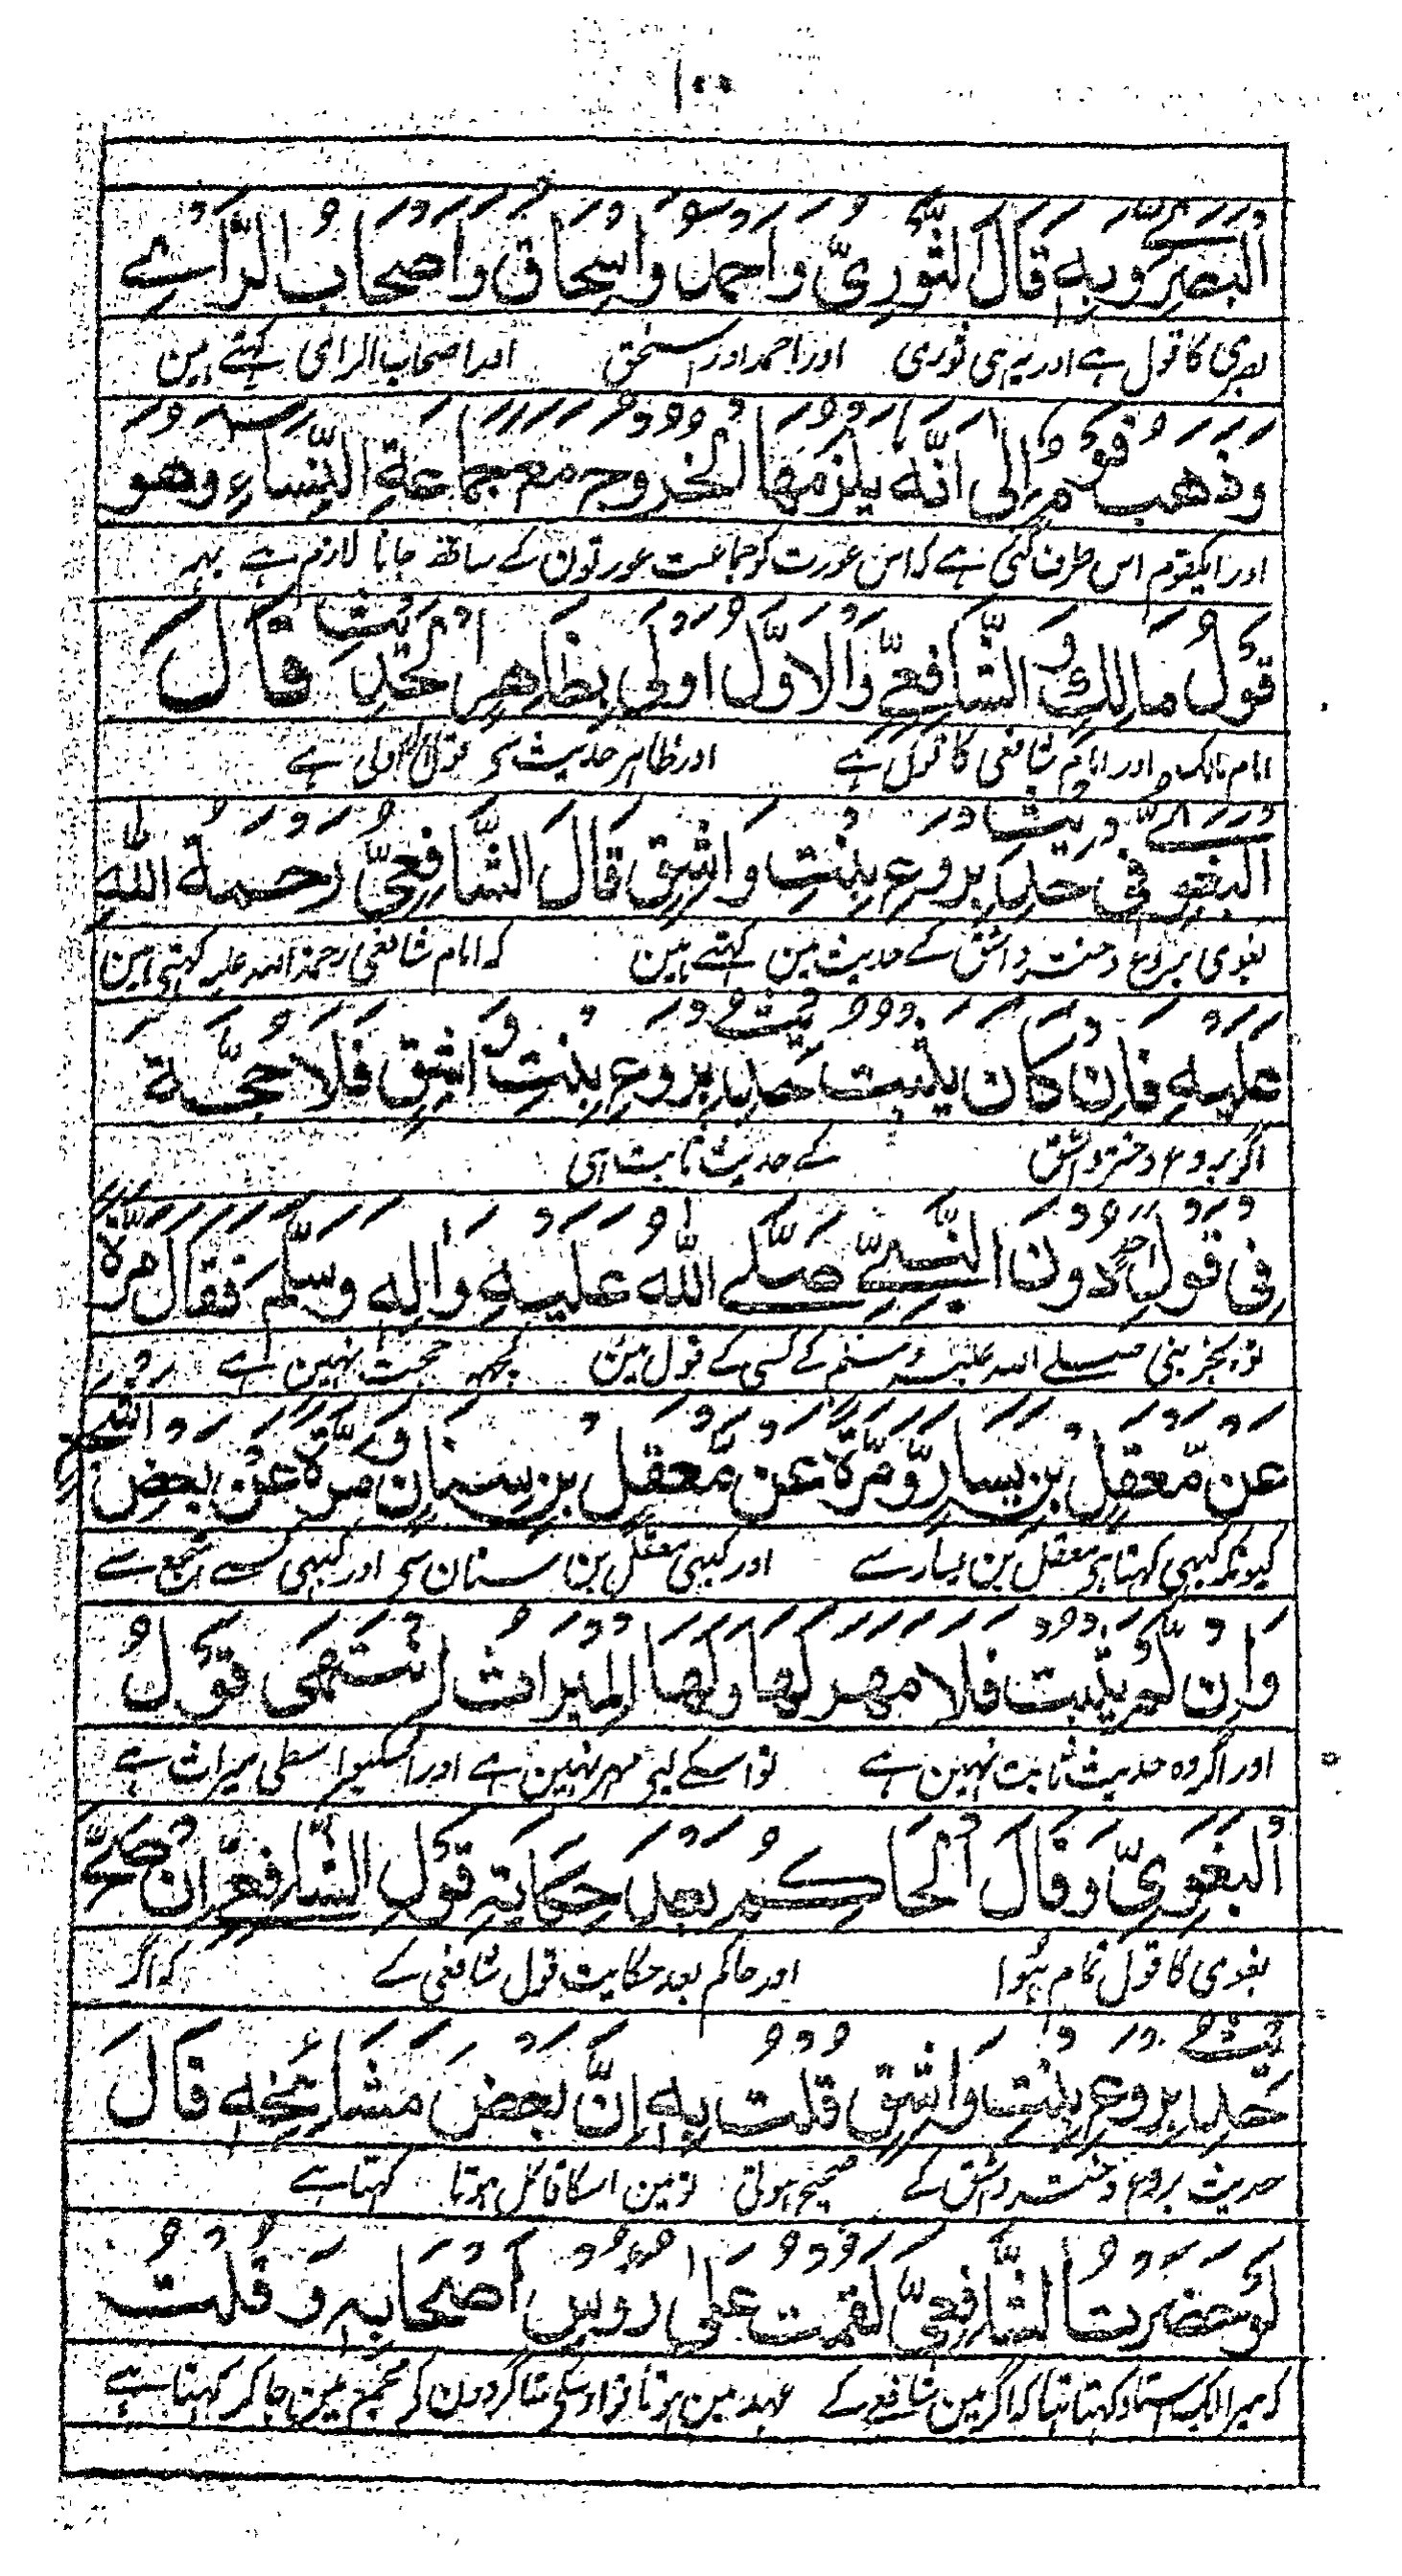 ۱۰۰
الْبَصَرِيِّ وَبِهِ قَالَ الثَّوْرِيُّ وَاَحْمَدُ وَاِسْحَاقُ وَاَصْحَابُ الرَّأيِ
بصری کا قول ہے اور یہ ہی ثوری اور احمد اور اسحق اور اصحاب الرای کہتے ہین
وَذَهَبَ قَوْمٌ اِلٰى اَنَّهٗ يَلْزَمُهَا الْخُرُوْجُ مَعَ جَمَاعَةِ النِّسَاءِ وَهُوَ
اور ایکقوم اس طرف گئی ہے کہ اس عورت کو جماعت عورتون کے ساتھ جانا لازم ہے یہہ
قَوْلُ مَالِكٍ وَالشَّافِعِيِّ وَالْاَوَّلُ اَوْلٰى بِظَاهِرِ الْحَدِيْثِ قَالَ
امام مالک اور امام شافعی کا قول ہے اور ظاہر حدیث سے قول اول اولی ہے
الْبَغَوِيُّ فِيْ حَدِيْثِ بِرْوَعِ بِنْتِ وَاشِقٍ قَالَ الشَّافِعِيُّ رَحْمَةُ اللهِ
بغوی بروع دخت واشق کے حدیث مین کہتے ہین کہ امام شافعی رحمۃ اللہ علیہ کہتی ہین
عَلَيْهِ فَاِنْ كَانَ يَثْبُتُ حَدِيْثُ بِرْوَعِ بِنْتِ وَاشِقٍ فَلَا حُجَّةَ
اگر بروع دختر واشق کے حدیث ثابت ہی
فِيْ قَوْلِ اَحَدٍ دُوْنَ النَّبِيِّ صَلَّى اللهُ عَلَيْهِ وَاٰلِهٖ وَسَلَّمَ فَقَالَ مَرَّةً
تو بجز نبی صلے اللہ علیہ وسلم کے کسی کے قول مین کچہہ حجت نہین ہے
عَنْ مَّعْقِلِ بْنِ يَسَارٍ وَّمَرَّةً عَنْ مَّعْقِلِ بْنِ سِنَانٍ وَمَرَّةً عَنْ بَعْضِ اَشْجَعَ
کیونکہ کبہی کہتا ہی معقل بن یسار سے اور کبہی معقل بن سنان سی اور کبہی کسے اشجع سے
وَاِنْ لَّمْ يَثْبُتْ فَلَا مَهْرَ لَهَا وَلَهَا الْمِيْرَاثُ اِنْتَهٰى قَوْلُ
اور اگر وہ حدیث ثابت نہین ہے تو اسکے لیے مہر نہین ہے اور اسکیواسطی میراث ہے
الْبَغَوِيِّ وَقَالَ الْحَاكِمُ بَعْدَ حِكَايَةِ قَوْلِ الشَّافِعِيِّ اِنْ صَحَّ
بغوی کا قول تمام ہُوا اور حاکم بعد حکایت قول شافعی کے کہ اگر
حَدِيْثُ بِرْوَعِ بِنْتِ وَاشِقٍ قُلْتُ بِهٖ اِنَّ بَعْضَ مَشَائِخِهٖ قَالَ
حدیث بروع دخت واشق کے صحیح ہوتی تو مین اسکا قائل ہوتا کہتا ہے
لَوْ حَضَرْتُ الشَّافِعِيَّ لَقُمْتُ عَلٰى رُؤُسِ اَصْحَابِهٖ وَقُلْتُ
کہ میرا ایک استاد کہتا تہا کہ اگر مین شافعے کے عہد مین ہوتا تو اوسکی شاگردون کے مجمع مین جا کر کہتا ہے